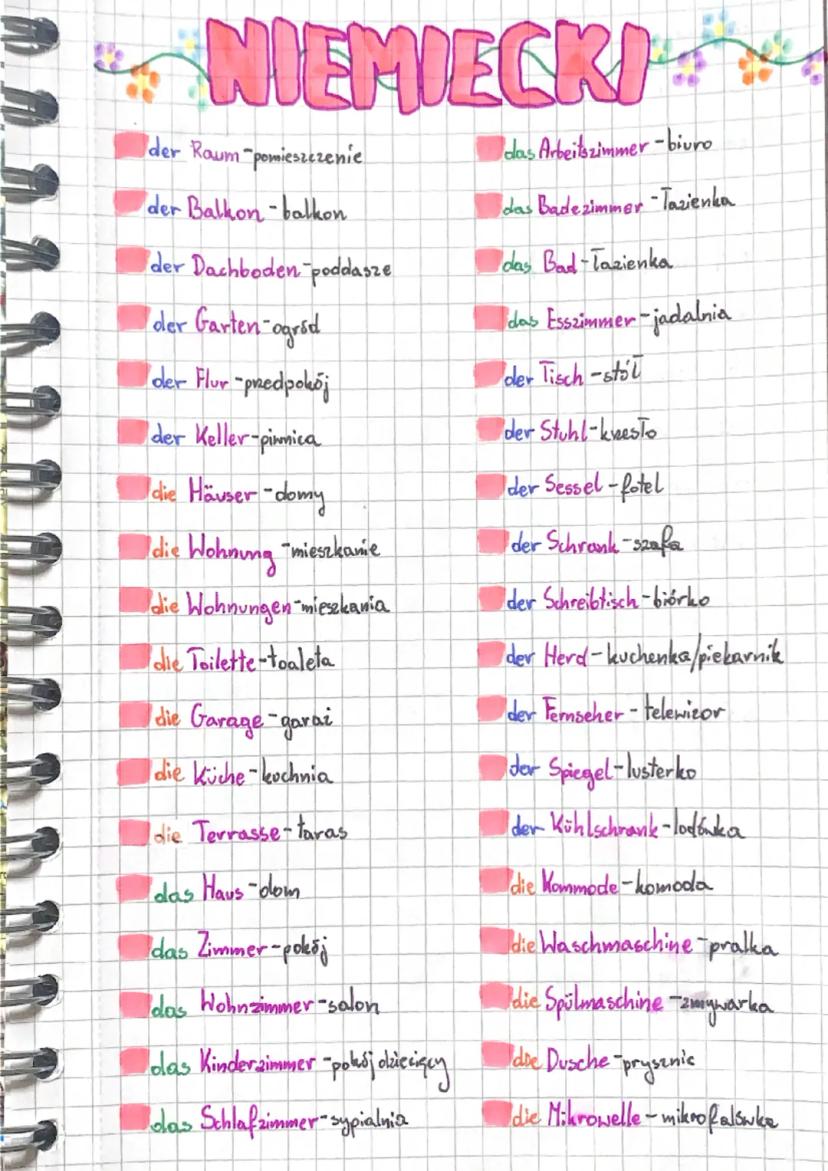 NIEMIECKI
der Raum - pomieszczenie
der Balkon - balkon
der Dachboden - poddasze
der Garten - ogród
der Flur - przedpokój
der Keller - piwnica
die Häuser - domy
die Wohnung - mieszkanie
die Wohnungen - mieszkania
die Toilette - toaleta
die Garage - garaż
die Küche - kuchnia
die Terrasse - taras
das Haus - dom
das Zimmer - pokój
das Wohnzimmer - salon
das Kinderzimmer - pokój dziecięcy
das Schlafzimmer - sypialnia
das Arbeitszimmer - biuro
das Badezimmer - łazienka
das Bad - łazienka
das Esszimmer - jadalnia
der Tisch - stół
der Stuhl - krzesło
der Sessel - fotel
der Schrank - szafa
der Schreibtisch - biórko
der Herd - kuchenka/piekarnik
der Fernseher - telewizor
der Spiegel - lusterko
der Kühlschrank - lodówka
die Kommode - komoda
die Waschmaschine - pralka
die Spülmaschine - zmywarka
die Dusche - prysznic
die Mikrowelle - mikrofalówka